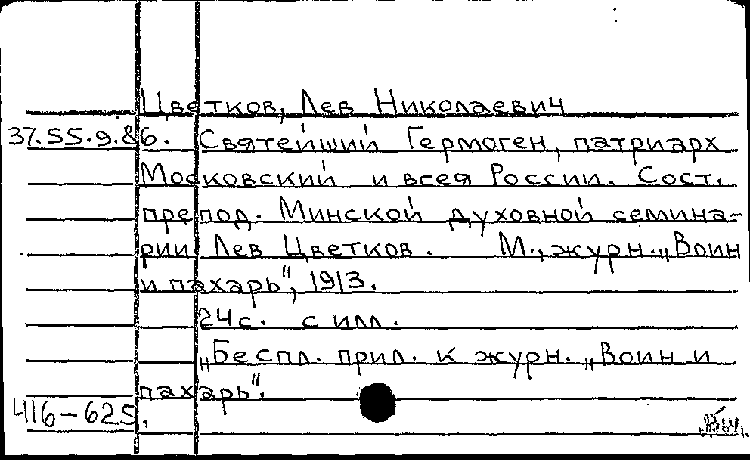 Цветков, Лев Николаевич
37.55.9.86. Святейший Гермоген, патриарх
Московский и всея России. Сост.
препод. Минской духовной семина-
рии Лев Цветков. М., журн. „Воин
и пахарь", 1913.
24с. с илл.
„Беспл. прил. к журн. „Воин и
пахарь".
416-625.